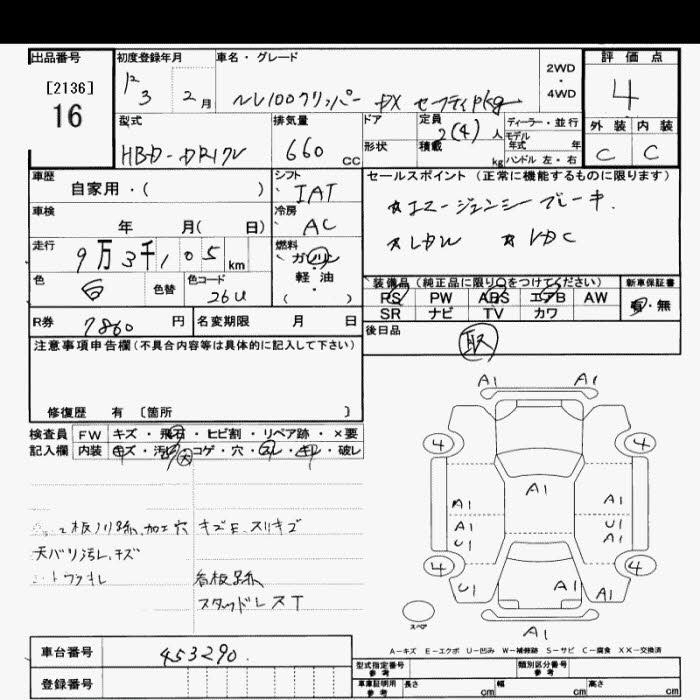 出品番号
[2136]
16
初度登録年月
3 2月
車名・グレード
NV100クリッパー DX セーフティPkg
2WD
・
4WD
評価点
4
外装 内装
C C
型式
HBD-DR17V
排気量
660 cc
ドア
形状
定員
2(4)人
積載
kg
ディーラー・並行
モデル
年式 年
ハンドル 左・右
車歴
自家用・( )
シフト
IAT
セールスポイント (正常に機能するものに限ります)
☆エマージェンシーブレーキ.
☆LDW ☆VDC
車検
年 月( 日)
冷房
AC
走行
9万3千105 km
燃料
ガソリン
・
軽・油
( )
色
白
色替
色コード
26U
装備品 (純正品に限り○をつけてください)
PS PW ABS エアB AW
SR ナビ TV カワ
新車保証書
有・無
R券
7860 円
名変期限 月 日
後日品
取
注意事項申告欄(不具合内容等は具体的に記入して下さい)
修復歴 有 〔箇所 〕
検査員 FW キズ・飛石・ヒビ割・リペア跡・×要
記入欄 内装 キズ・汚れ 大 コゲ・穴・スレ・キレ・破レ
板ノリ跡、加工穴 キズE、スリキズ
天バリ汚レ、キズ
看板跡
スタッドレスT
A1 A1
4 4
A1
A1 A1
A1 U1
U1 A1
4 4
U1 A1 A1
スペア
A1
A-キズ E-エクボ U-凹み W-補修跡 S-サビ C-腐食 XX-交換済
車台番号
453290
登録番号
型式指定番号
参考
類別区分番号
参考
車庫証明用
参考
長さ cm
幅 cm
高さ cm